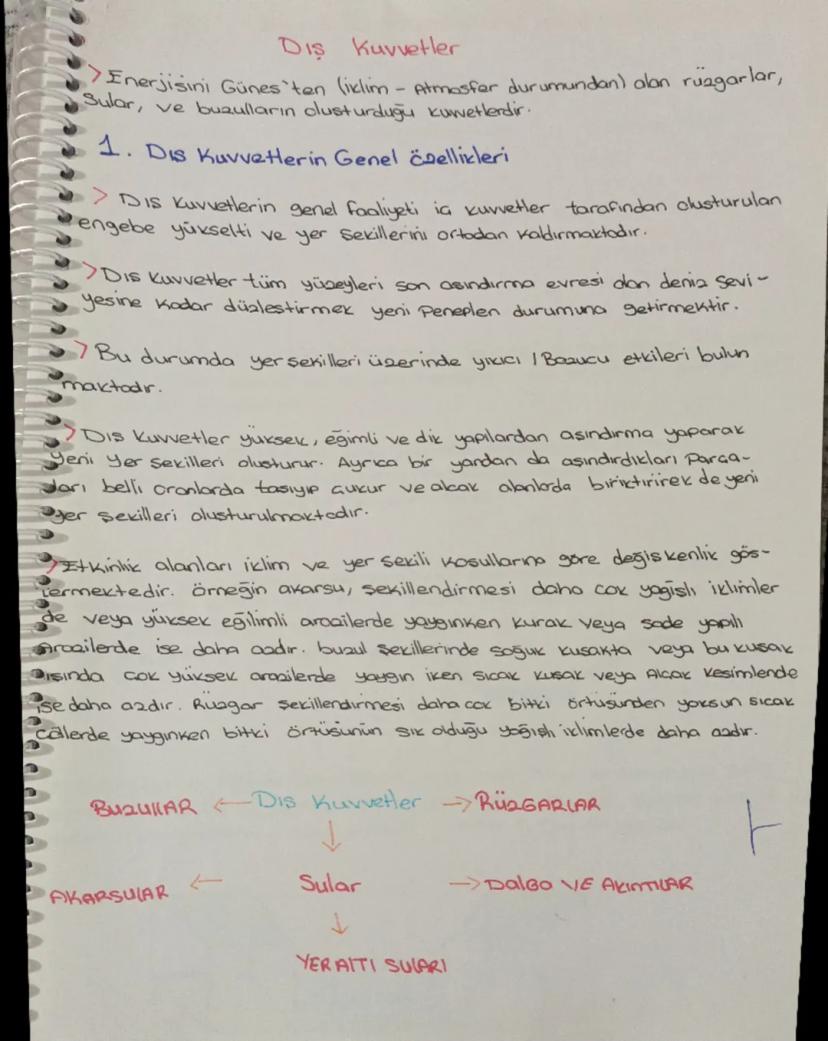 Dış Kuvvetler
> Enerjisini Güneş'ten (iklim - Atmosfer durumundan) alan rüzgarlar,
Sular, ve buzulların olusturduğu kuvvetlerdir.
1. Dıs Kuvvetlerin Genel özellikleri
> Dıs Kuvvetlerin genel faaliyeti ic kuvvetler tarafından olusturulan
engebe yükselti ve yer sekillerini ortadan kaldırmaktadır.
> Dıs Kuvvetler tüm yüzeyleri son asındırma evresi olan deniz sevi-
yesine kadar düzlestirmek yeni Peneplen durumuna getirmektir.
> Bu durumda yer sekilleri üzerinde yıkıcı / Bozucu etkileri bulun
maktadır.
> Dıs Kuvvetler yüksek, eğimli ve dik yapılardan asındırma yaparak
yeni yer sekilleri olusturur. Ayrıca bir yandan da asındırdıkları Parca-
ları belli oranlarda tasıyıp cukur ve alcak alanlarda biriktirirek de yeni
yer sekilleri olusturulmaktadır.
> Etkinlik alanları iklim ve yer sekili kosullarına göre değiskenlik gös-
termektedir. örneğin akarsu, sekillendirmesi daha cok yağıslı iklimler
de veya yüksek eğilimli arazilerde yaygınken kurak veya sade yapılı
arazilerde ise daha azdır. buzul sekillerinde soğuk kusakta veya bu kusak
dısında cok yüksek arazilerde yaygın iken sıcak kusak veya Alcak kesimlende
ise daha azdır. Rüzgar sekillendirmesi daha cok bitki örtüsünden yoksun sıcak
cöllerde yaygınken bitki örtüsünün sık olduğu yağıslı iklimlerde daha azdır.
BUZULLAR ← Dıs Kuvvetler → RÜZGARLAR
↓
AKARSULAR ← Sular → DALGA VE AKINTILAR
↓
YER ALTI SULARI